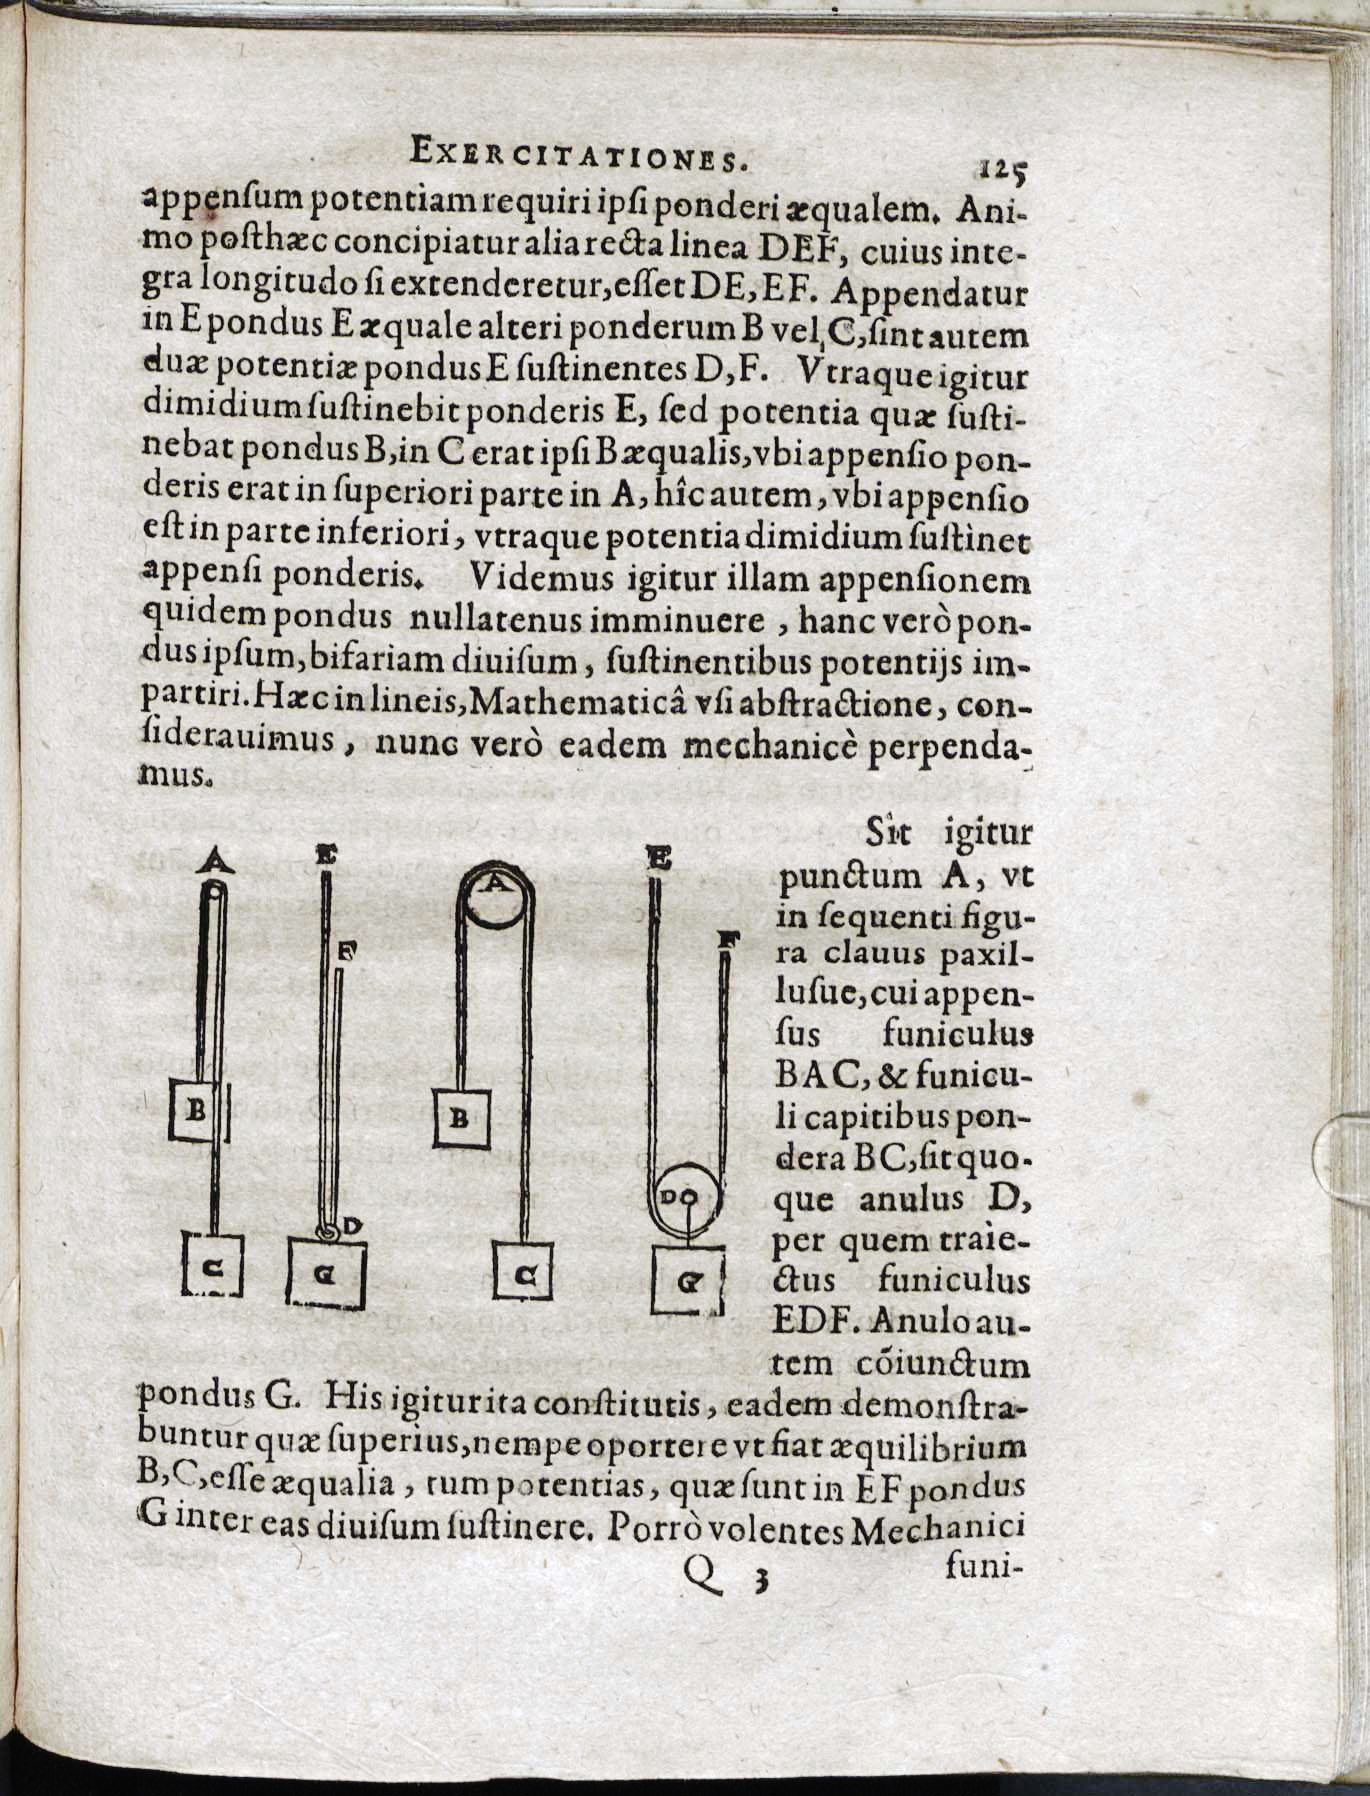 EXERCITATIONES. 125
appenſum potentiam requiri ipſi ponderi æqualem. Ani-
mo poſthæc concipiatur alia recta linea DEF, cuius inte-
gra longitudo ſi extenderetur, eſſet DE, EF. Appendatur
in E pondus E æquale alteri ponderum B vel, C, ſint autem
duæ potentiæ pondus E ſuſtinentes D, F. Vtraque igitur
dimidium ſuſtinebit ponderis E, ſed potentia quæ ſuſti-
nebat pondus B, in C erat ipſi B æqualis, vbi appenſio pon-
deris erat in ſuperiori parte in A, hîc autem, vbi appenſio
eſt in parte inferiori, vtraque potentia dimidium ſuſtìnet
appenſi ponderis. Videmus igitur illam appenſionem
quidem pondus nullatenus imminuere, hanc verò pon-
dus ipſum, bifariam diuiſum, ſuſtinentibus potentijs im-
partiri. Hæc in lineis, Mathematicâ vſi abſtractione, con-
ſiderauimus, nunc verò eadem mechanicè perpenda-
mus.
A
B
C
E
F
D
G
A
B
C
E
F
D
G
Sit igitur
punctum A, vt
in ſequenti figu-
ra clauus paxil-
luſue, cui appen-
ſus funiculus
BAC, & funicu-
li capitibus pon-
dera BC, ſit quo-
que anulus D,
per quem traie-
ctus funiculus
EDF. Anulo au-
tem cōiunctum
pondus G. His igitur ita conſtitutis, eadem demonſtra-
buntur quæ ſuperius, nempe oportere vt fiat æquilibrium
B, C, eſſe æqualia, tum potentias, quæ ſunt in EF pondus
G inter eas diuiſum ſuſtinere. Porrò volentes Mechanici
Q 3 funi-